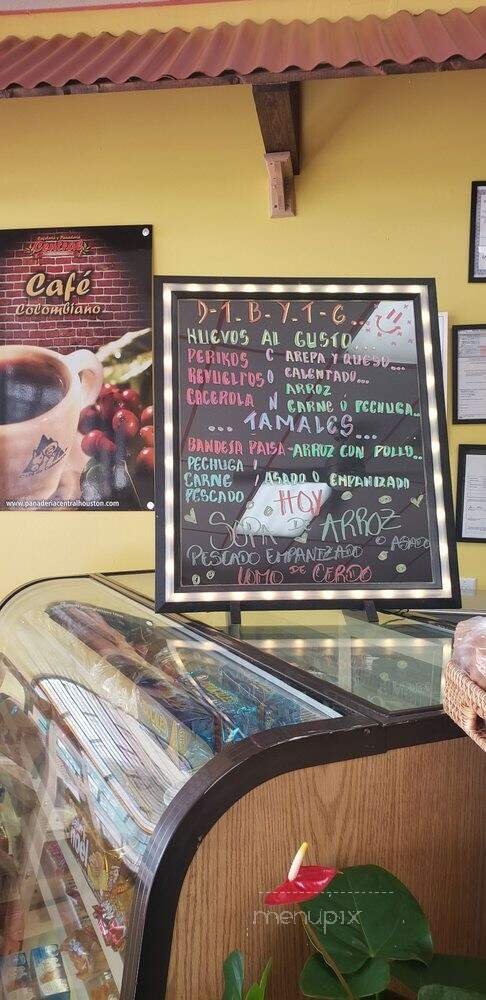 Reposteria y Panaderia
Central
Café
Colombiano
www.panaderiacentralhouston.com
D-1.B-Y-T-G...
HUEVOS AL GUSTO...
PERIKOS C AREPA Y QUESO...
REVUELTOS O CALENTADO...
ARROZ
CACEROLA N CARNE Ó PECHUGA..
... TAMALES ...
BANDEJA PAISA - ARROZ CON POLLO...
PECHUGA
CARNE , ASADO O EMPANIZADO
PESCADO
HOY
SOPA DE ARROZ
PESCADO EMPANIZADO O ASADO
LOMO DE CERDO
menupix